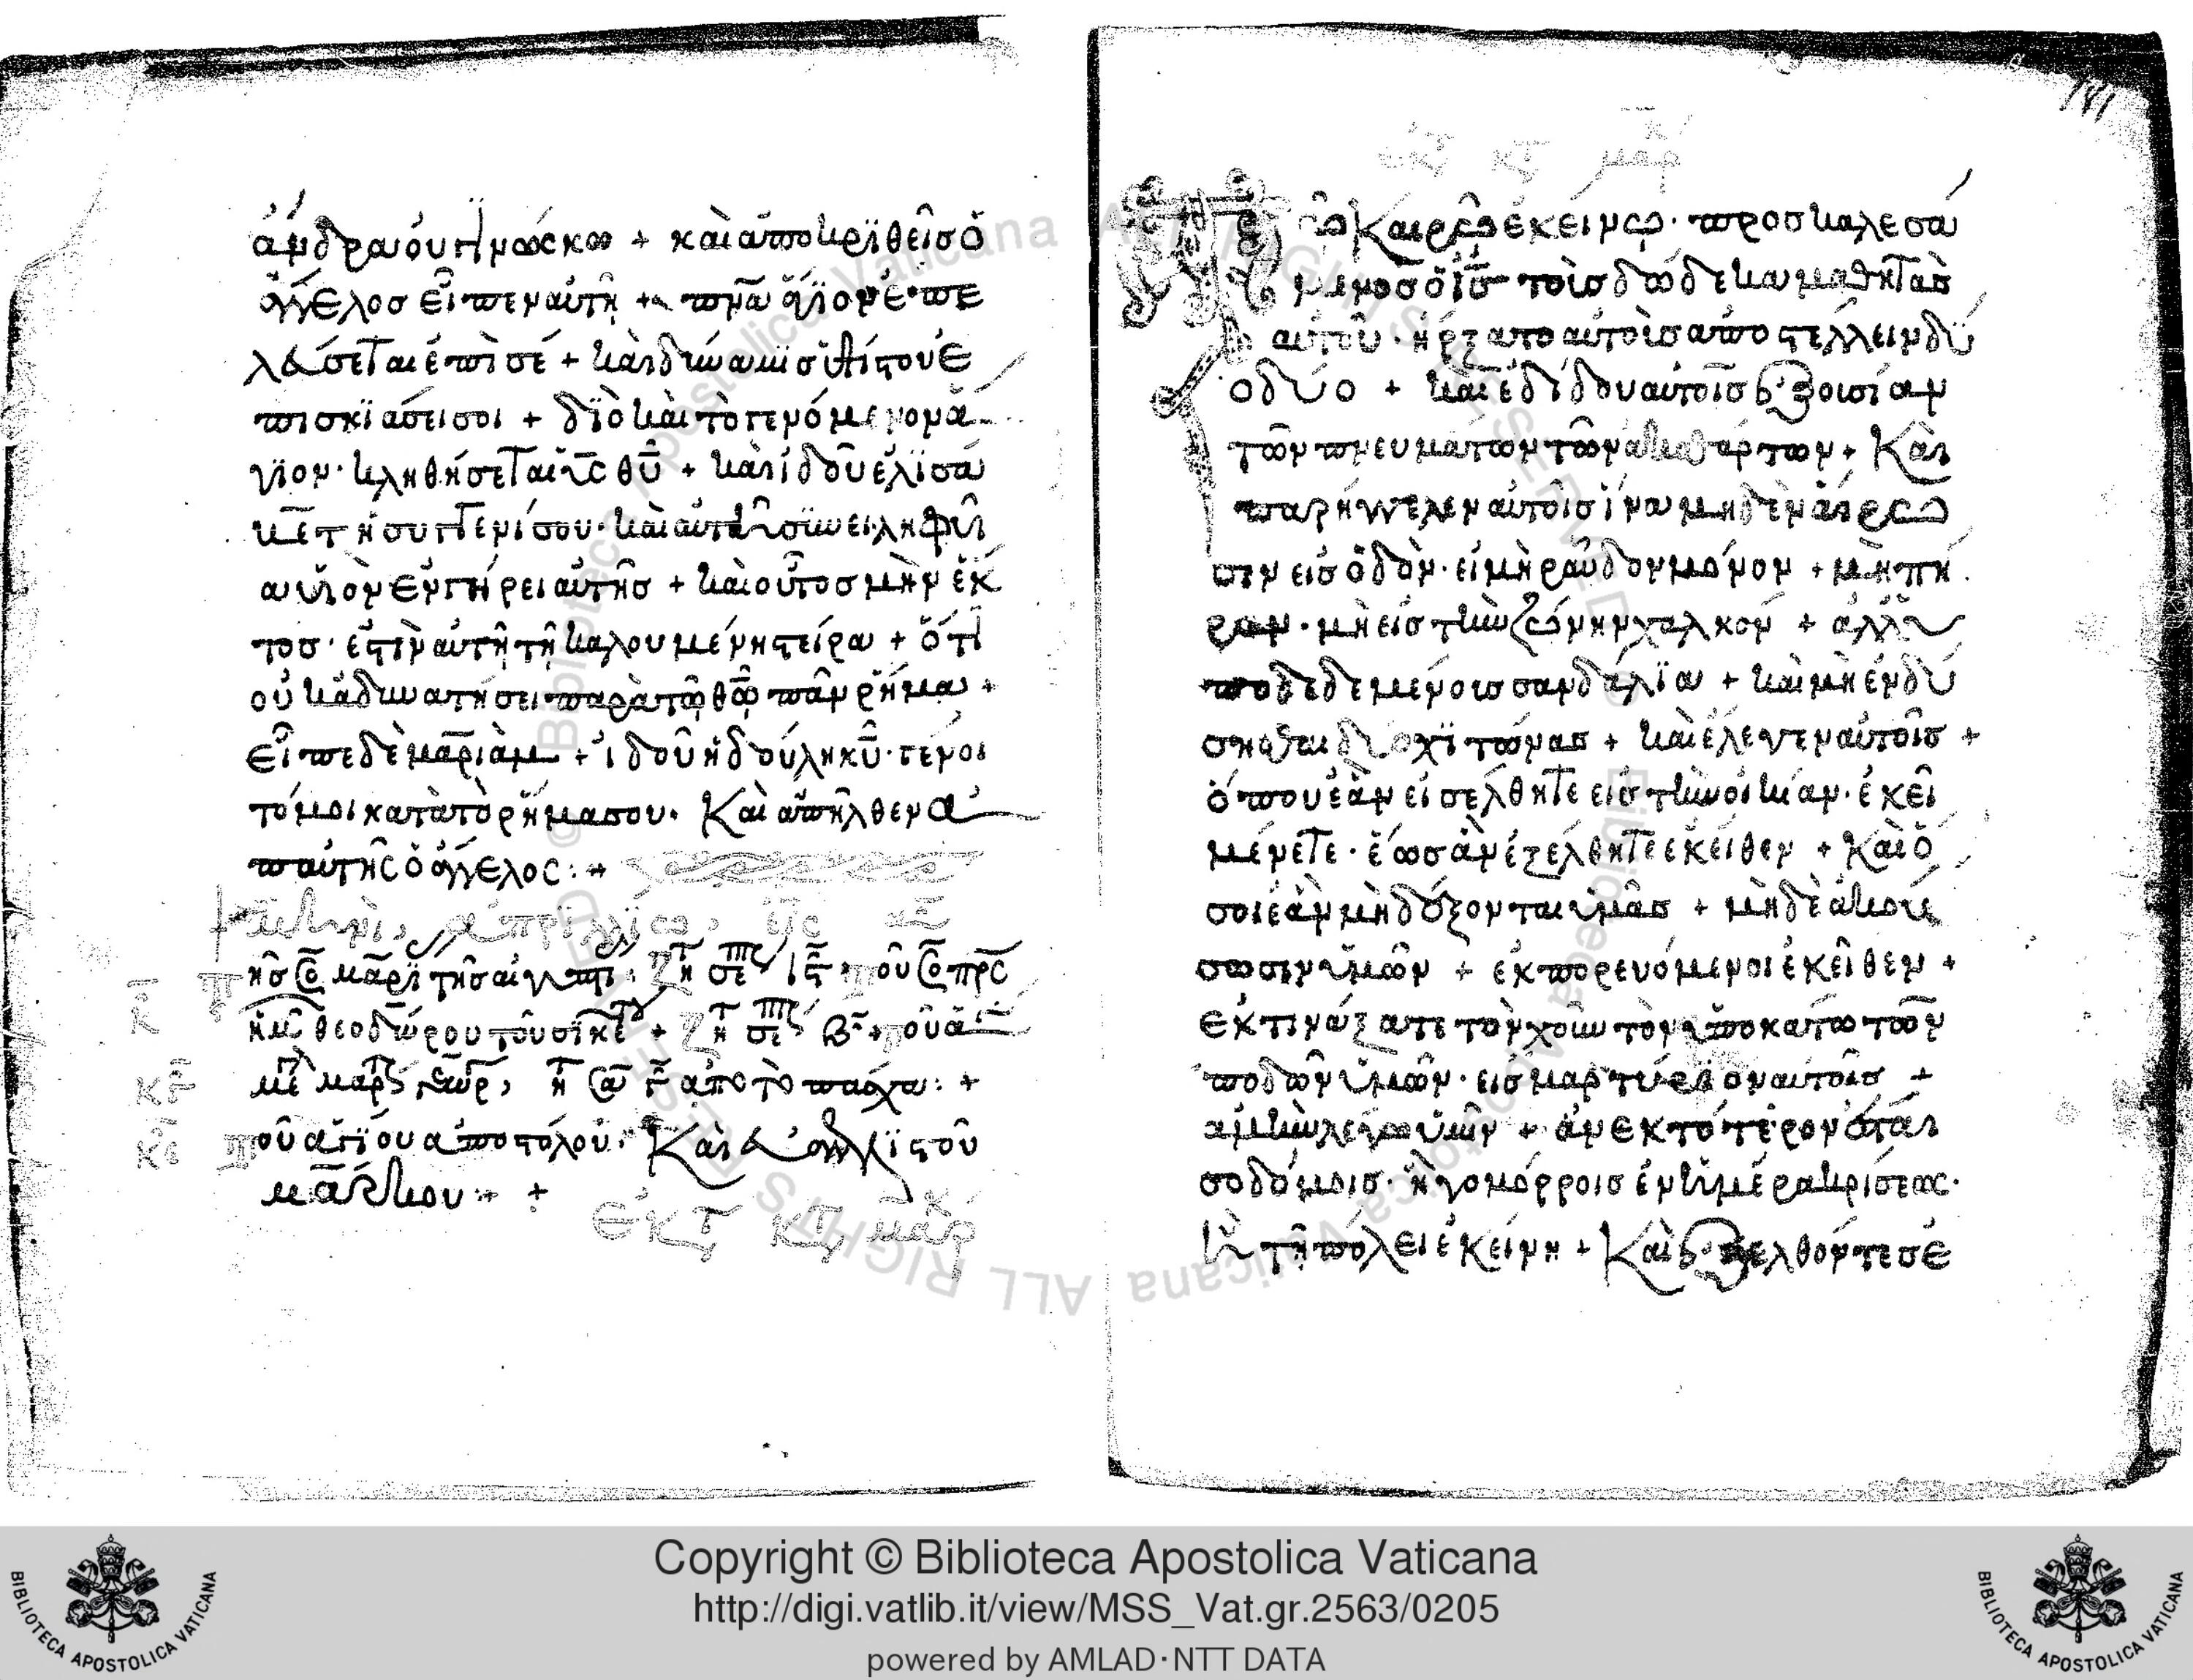 ἄνδρα οὐ γινώσκω + καὶ ἀποκριθεὶσ ὁ
ἄγγελοσ εἶπεν αὐτῆ + πνᾶ ἅγϊον ἐπε
λεύσεται ἐπὶ σέ + καὶ δύναμϊσ ὑψίστου ἐ
πισκϊάσει σοι + δϊὸ καὶ τὸ γενόμενον ἅ
γϊον· κληθήσεται ῡς θῡ + καὶ ἰδοῦ ἐλϊσά
βετ ἡ συγγενίσου· καὶ αὐτὴ συνειληφυῖ
α υἱὸν ἐν γήρει αὐτῆσ + καὶ οὗτοσ μὴν ἕκ
τοσ· ἐστὶν αὐτῆ τῆ καλουμένη στείρα + ὅτι
οὐκ ἀδυνατήσει παρὰ τῶ θῶ πᾶν ρῆμα +
εἶπε δὲ μαριὰμ + ἰδοῦ ἡ δούλη κῡ· γένοι
τό μοι κατὰ τὸ ρῆμα σου· Καὶ ἀπῆλθεν ἀ
π αὐτῆς ὁ ἄγγελος: +
ποῦ ἁγίου ἀποστόλου· Καὶ εὐαγγελϊστοῦ
μάρκου +
ῶ Καιρῶ ἐκείνω· προσκαλεσά
μενοσ ὁ ῑσ τοὺσ δώδεκα μαθητὰσ
αὐτοῦ· ἤρξατο αὐτοὺσ ἀποστέλλειν δύ
ο δύο + καὶ ἐδίδου αὐτοῖσ ἐξουσίαν
τῶν πνευμάτων τῶν ἀκαθάρτων + Καὶ
παρήγγελεν αὐτοῖσ ἵνα μηδὲν αἴρω
σιν εἰσ ὁδὸν· εἰ μὴ ράβδον μόνον + μὴ πή
ραν· μὴ εἰσ τὴν ζώνην χαλκόν + ἀλλ ὑ
ποδεδεμένουσ σανδάλϊα + καὶ μὴ ἐνδύ
σησθαι δύο χϊτώνασ + καὶ ἔλεγεν αὐτοῖσ +
ὅπου ἐὰν εἰσέλθητε εἰσ τὴν οἰκίαν· ἐκεῖ
μένετε· ἕωσ ἂν ἐξέλθητε ἐκεῖθεν + Καὶ ὅ
σοι ἐὰν μὴ δέξονται ὑμᾶσ + μηδὲ ἀκού
σωσιν ὑμῶν + ἐκπορευόμενοι ἐκεῖθεν +
ἐκτινάξατε τὸν χοῦν τὸν ὑποκάτω τῶν
ποδῶν ὑμῶν· εἰσ μαρτύρϊον αὐτοῖσ +
ἀμὴν λέγω ὑμῖν + ἀνεκτότερον ἔσται
σοδόμοισ· ἢ γομόρροισ ἐν ἡμέρα κρίσεως·
ἢ τῆ πόλει ἐκείνη + Καὶ ἐξελθόντεσ ἐ
Copyright © Biblioteca Apostolica Vaticana
http://digi.vatlib.it/view/MSS_Vat.gr.2563/0205
powered by AMLAD·NTT DATA
BIBLIOTECA APOSTOLICA VATICANA
BIBLIOTECA APOSTOLICA VATICANA